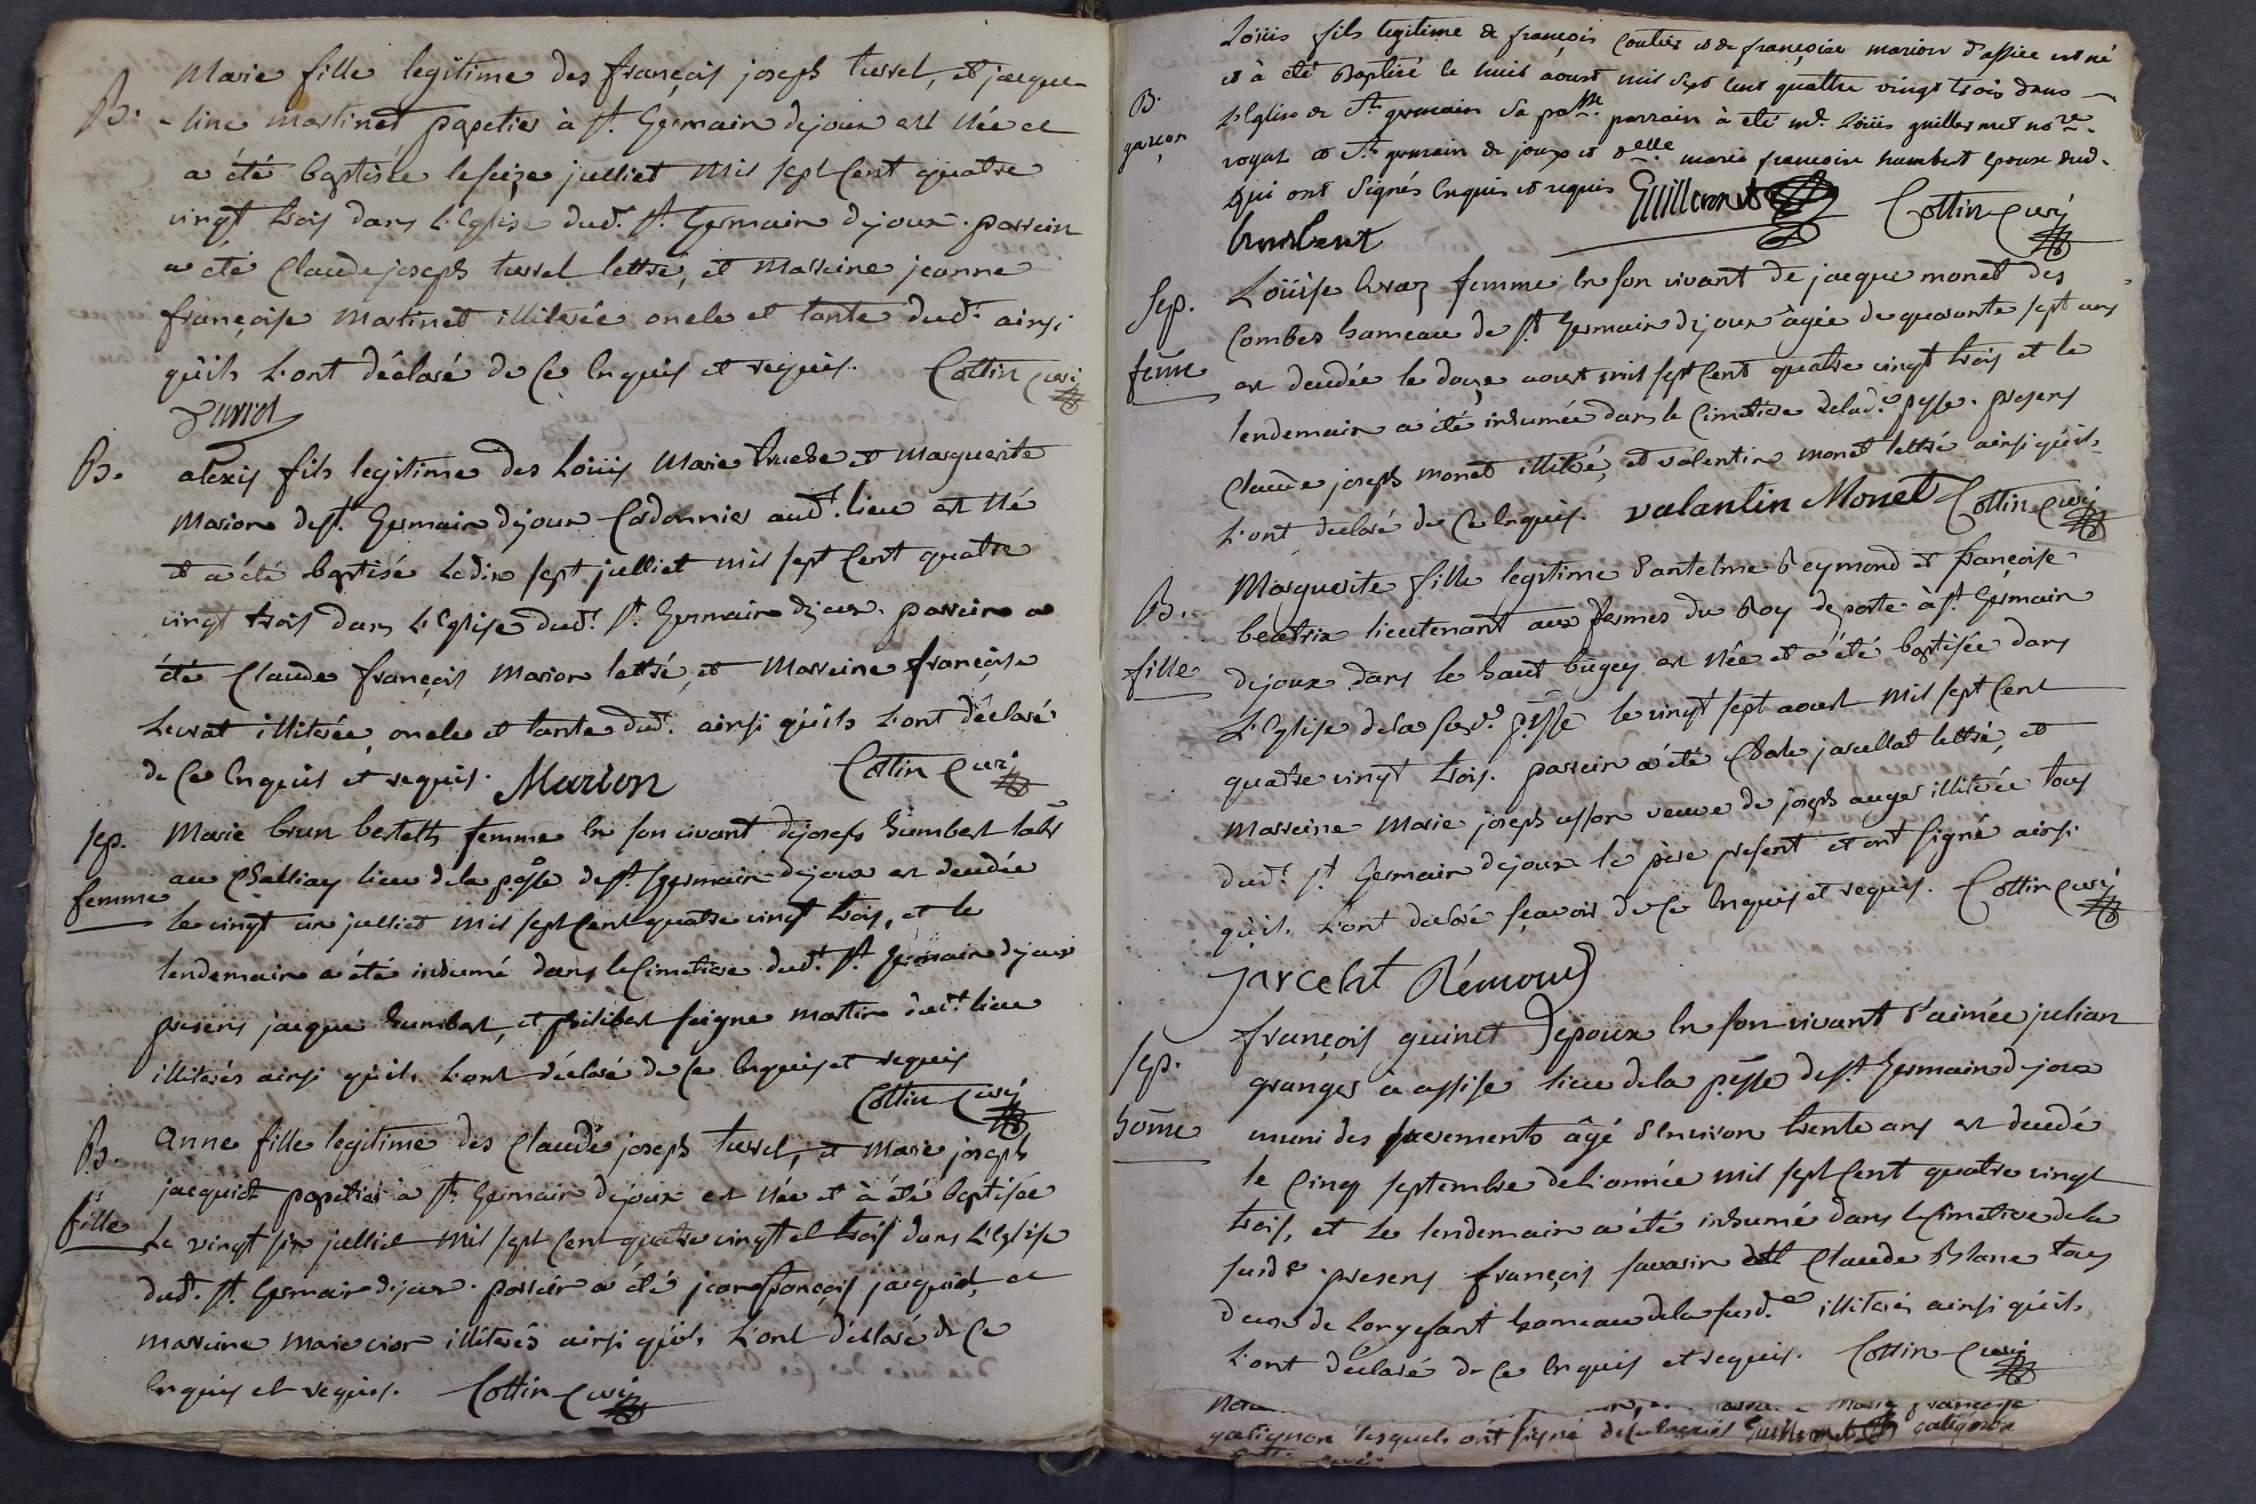 B. Marie fille legitime des françois joseph turrel, et jacque
-line martinet papetier à st. Germain dejoux est née et
a été baptisée le seize julliet mil sept cent quatre
vingt trois dans l'Eglise dud. st. Germain dejoux. parrein
a été Claude joseph turrel lettré, et Marreine jeanne
françoise Martinet illiterée oncle et tante dud. ainsi
qu'ils l'ont déclaré de ce enquis et requis. Cottin curé
Turrel
B. alexis fils legitime des Loüis Marie et Marguerite
Marion de st. Germain dejoux Cordonnier aud. lieu est né
et a été baptisé le dix sept julliet mil sept cent quatre
vingt trois dans l'Eglise dud. st. Germain dejoux. parrein a
été Claude françois Marion lettré, et Marreine françoise
Levrat illiterée, oncle et tante dud. ainsi qu'ils l'ont déclaré
de ce enquis et requis. Marion Cottin curé
sep. Marie brun femme en son vivant de joseph humbert labr
femme au Challiay lieu de la psse de st. Germain dejoux est decedée
le vingt un julliet mil sept cent quatre vingt trois, et le
lendemain a été inhumé dans le cimetiere dud. st. Germain dejoux
presens jacque humbert, et philibert seigne martin dud. lieu
illiterés ainsi qu'ils l'ont déclaré de ce enquis et requis
Cottin curé
B. Anne fille legitime des Claude joseph turrel, et Marie joseph
jacquiot papetier à st. Germain dejoux est née et à été baptisée
fille le vingt six julliet mil sept cent quatre vingt et trois dans l'Eglise
dud. st. Germain dejoux. parrein a été jean françois jacquiot, et
marreine marie vion illiterés ainsi qu'ils l'ont déclaré de ce
enquis et requis. Cottin curé
Loüis fils legitime de françois et de françoise marion d'assise est né
et à été Baptisé le huit aoust mil sept cent quattre vingt trois dans
B. l'Eglise de st. germain sa psse. parrain à été mr. Loüis guillermet nore.
garçon royal st. germain de joux et delle marie francoise humbert epouse dud.
qui ont signés enquis et requis Guillermet Cottin curé
humbert
sep. Loüise femme en son vivant de jacque monet des
Combes hameau de st. Germain dejoux âgée de quarante sept ans
femme est decedée le douze aoust mil sept cent quatre vingt trois et le
lendemain a été inhumée dans le cimetiere de lad. psse. presens
Claude joseph monet illitré, et valentin monet lettré ainsi qu'ils
l'ont declaré de ce enquis. valantin Monet Cottin curé
B. Marguerite fille legitime d'antelme Reymond et françoise
beatrix lieutenant aux fermes du Roy de poste à st. Germain
fille dejoux dans le haut bugey est née et a été baptisée dans
l'Eglise de la susd. psse le vingt sept aoust mil sept cent
quatre vingt trois. parrein a été Charle jarcellat lettré, et
marreine Marie joseph veuve de joseph auger illiterée tous
dud. st. Germain dejoux le père present et ont signé ainsi
qu'ils l'ont déclaré sçavoir de ce enquis et requis. Cottin curé
Rémond
sep. françois guinet Epoux en son vivant d'aimée julian
granger à assise lieu de la psse de st. Germain dejoux
home muni des sacrements âgé d'environ trente ans est decedé
le cinq septembre de l'année mil sept cent quatre vingt
trois, et le lendemain a été inhumé dans le cimetiere de la
susde. presens françois savarin et Claude Blanc tous
deux de Longefant hameau de la susd.e illiterés ainsi qu'ils
l'ont déclaré de ce enquis et requis. Cottin curé
françoise
gatignon lesquels ont signé de ce enquis Guillermet gatignon